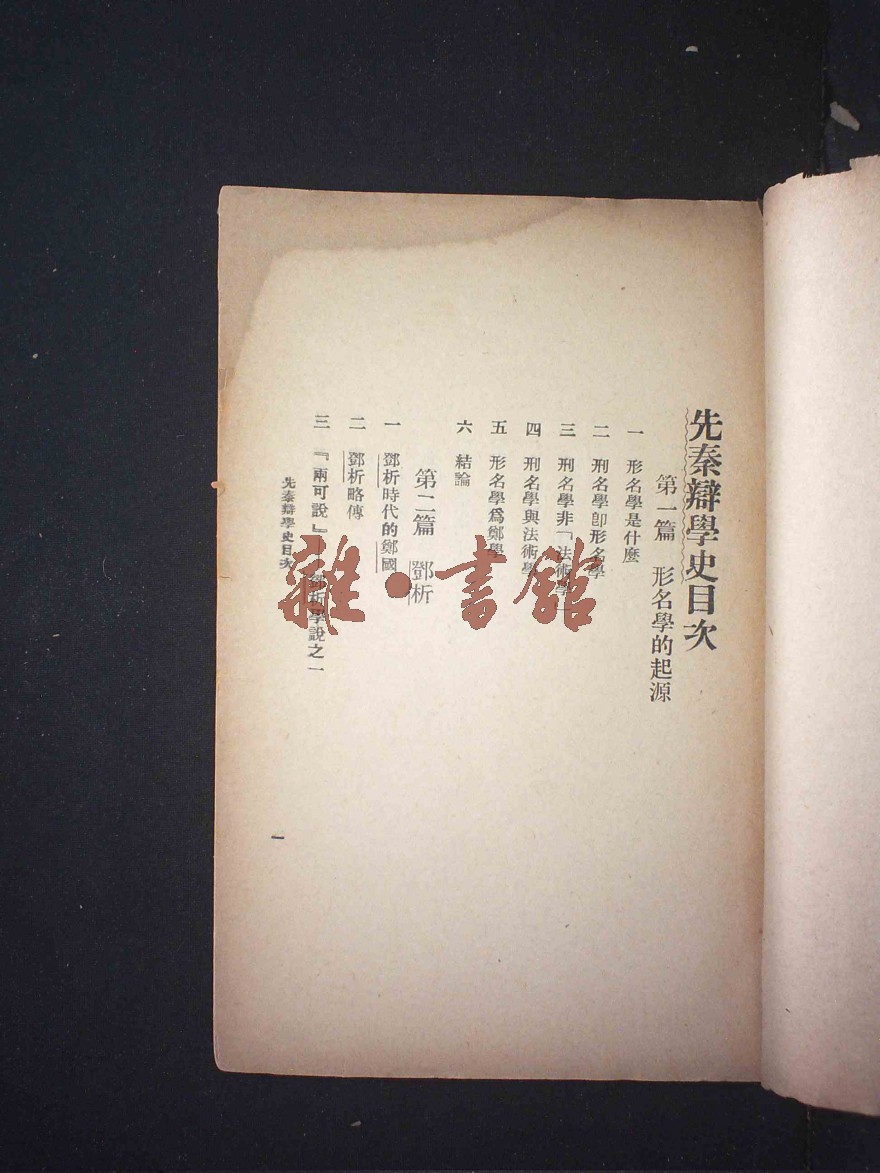 先秦辯學史目次
第一篇 形名學的起源
一 形名學是什麼
二 刑名學卽形名學
三 刑名學非「法術學」
四 刑名學與法術學
五 形名學爲鄭學
六 結論
第二篇 鄧析
一 鄧析時代的鄭國
二 鄧析略傳
三 『兩可說』——鄧析學說之一
先秦辯學史目次
一
雜·書館